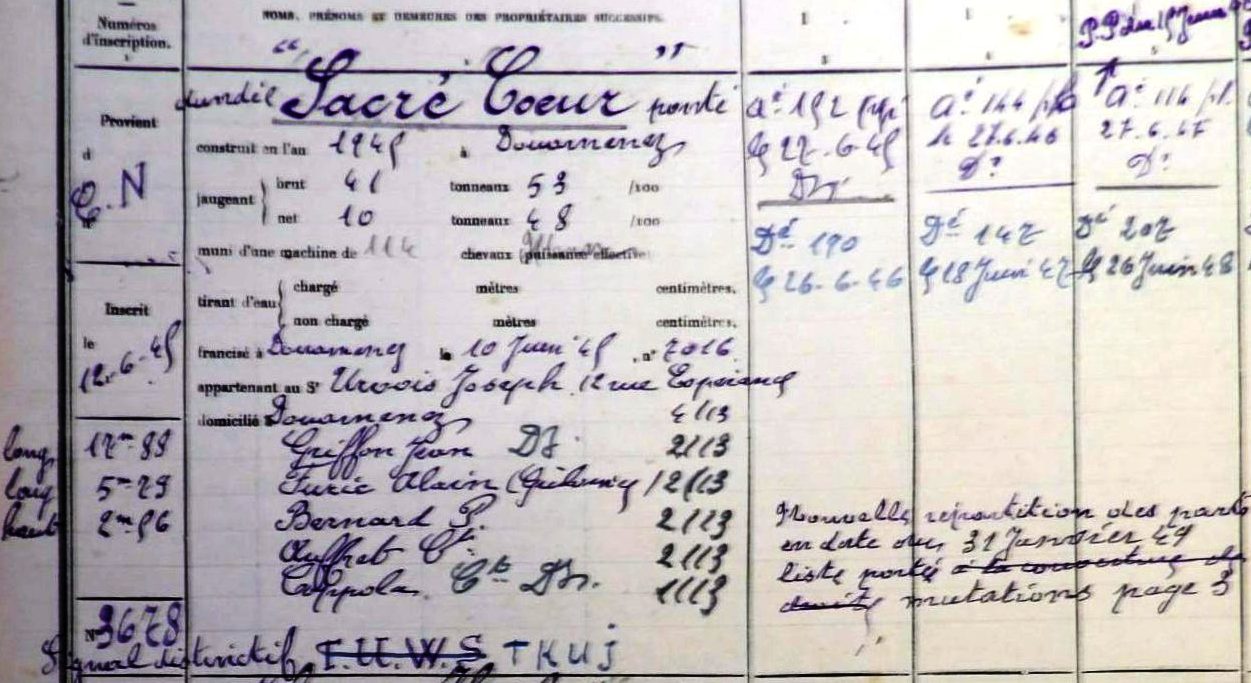 Numéros d'inscription.
NOMS, PRÉNOMS ET DEMEURES DES PROPRIÉTAIRES SUCCESSIFS.
P.P.
Provient
d
C.N
dundée "Sacré Coeur" ponté
construit en l'an 1945 à Douarnenez
jaugeant
brut 41 tonneaux 53 /100
net 10 tonneaux 48 /100
muni d'une machine de 114 chevaux (puissance effective)
tirant d'eau
chargé mètres centimètres.
non chargé mètres centimètres.
Inscrit
le
12-6-45
francisé à Douarnenez le 10 Juin 45, n° 2016
appartenant au Sr Urvois Joseph, 12 rue
domicilié Douarnenez 4/13
long 17m-89
larg 5m-29
haut 2m-96
Griffon Jean Dz. 2/13
Furic Alain 2/13
Bernard P. 2/13
Auffret 2/13
Coppola Dz. 1/13
N° 3678
Signal distinctif T.U.W.S TKUJ
Aé 192
le 27.6.45
Dz.
Dé 190
le 26-6-46
Aé 144
le 27.6.46
D°
Dé 147
le 18 Juin 47
Aé 116
27.6.47
D°
Dé 207
le 26 Juin 48
Nouvelle répartition des parts
en date du 31 Janvier 49
liste portée à la couverture
mutations page 3